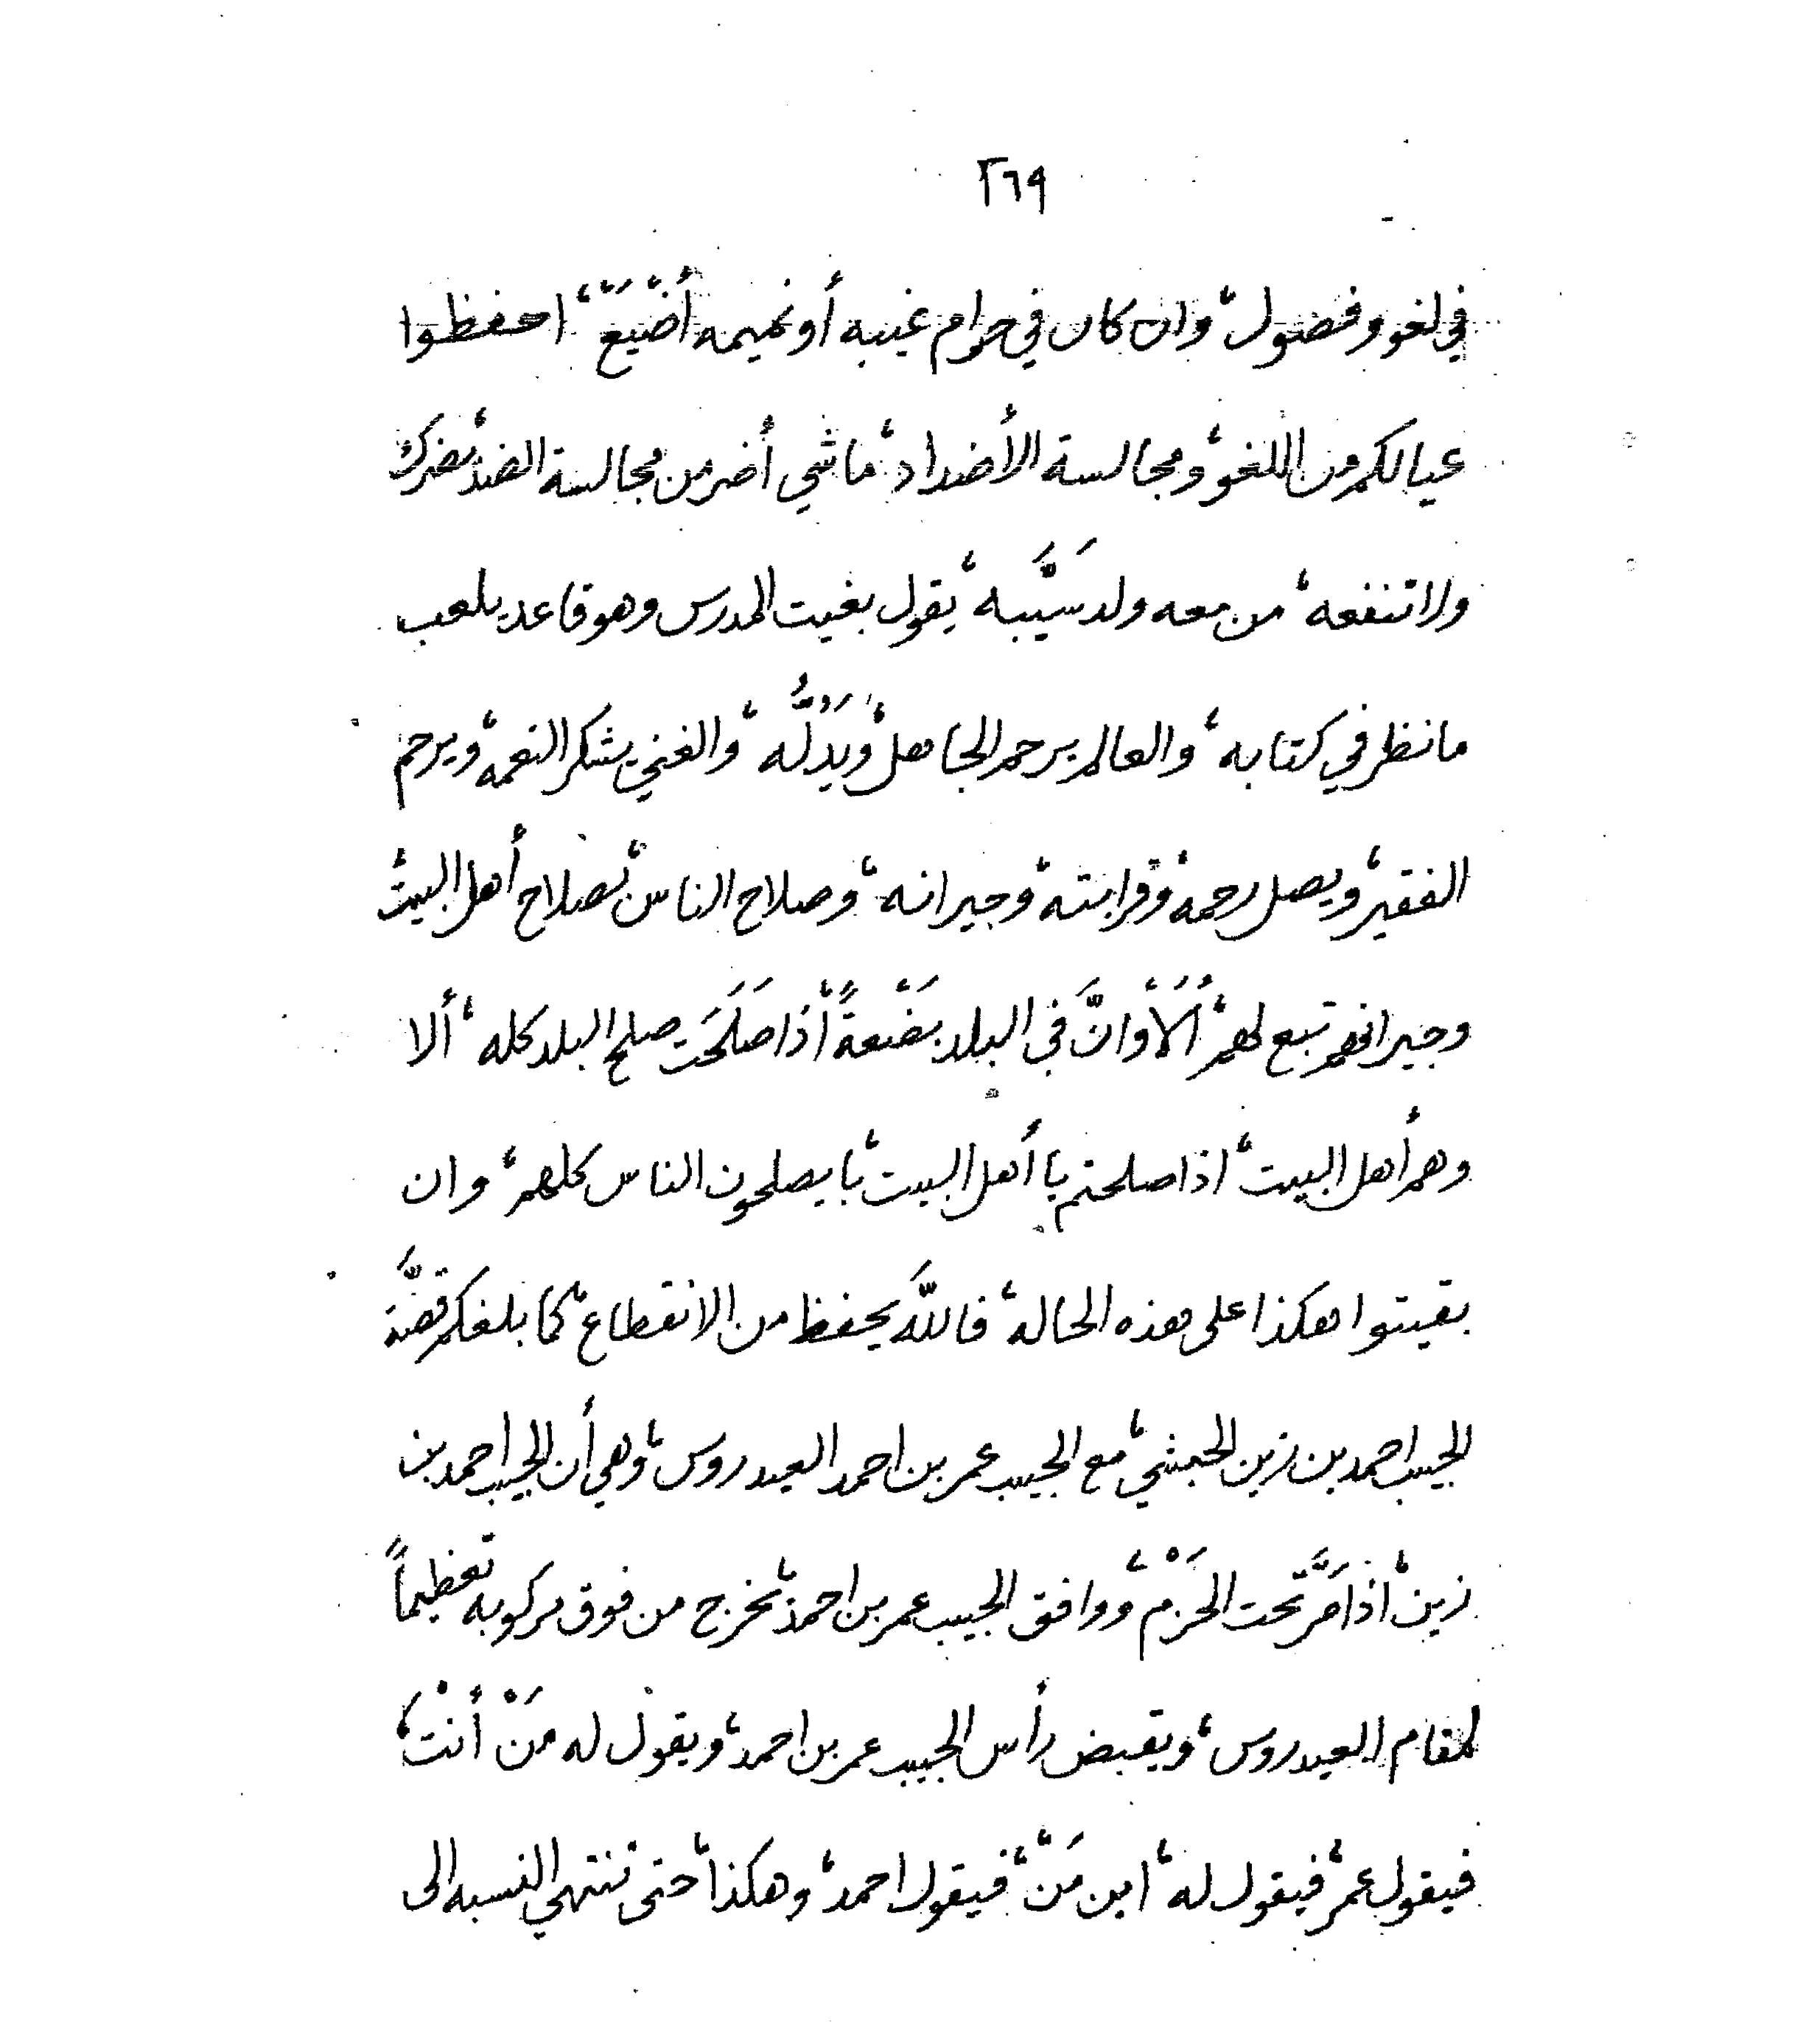 ٢٦٩
في لغو وفضول، وان كان في حرام غيبه أو نميمه أضْيَعْ، احفظوا
عيالكم من اللغو، ومجالسة الأضداد، ما شي أضر من مجالسة الضد، تضرك
ولا تنفعه، من معه ولد سَيَّبه، يقول بغيت المدرس وهو قاعد يلعب
ما نظر في كتابه، والعالم يرحم الجاهل، ويَدُلُّه، والغني يشكر النعمه، ويرحم
الفقير، ويصل رحمه، وقرابته، وجيرانه، وصلاح الناس، بصلاح أهل البيت،
وجيرانهم تبع لهم، أَلَا، وانَّ في البلد بضْعةً، أذا صَلَحَت صلح البلد كله، ألا
وهم أهل البيت، اذا صلحتم يا أهل البيت، با يصلحون الناس كلهم، وان
بقيتوا هكذا على هذه الحاله، فاللَّه يحفظ من الانقطاع، كما بلغكم قصَّة
الحبيب احمد بن زين الحبشي، مع الحبيب عمر بن احمد العيدروس، وهي أن الحبيب احمد بن
زين، اذا مَرَّ تحت الحَزْم، ووافق الحبيب عمر بن احمد، يخرج من فوق مركوبه تعظيماً
لمقام العيدروس، ويقبض رأس الحبيب عمر بن احمد، ويقول له مَنْ أنْتَ،
فيقول عمر، فيقول له، ابن مَنْ، فيقول احمد، وهكذا، حتى تنتهي النسبه الى